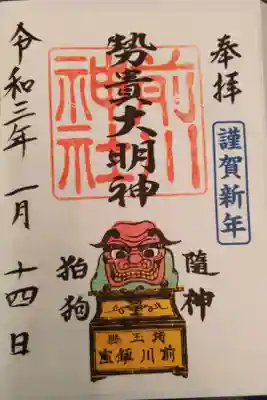 奉拝
謹賀新年
前川神社
勢貴大明神
令和三年一月十四日
隨神
狛狗
埼玉縣
前川鎮座